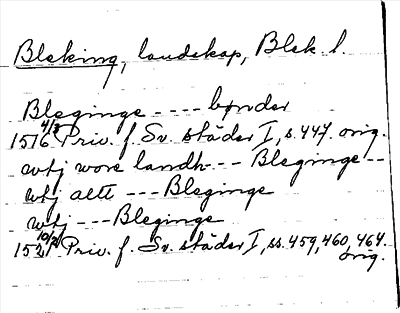 Bleking, landskap, Blek. l.
Bleginge ---- bønder
1516 4/3 Priv. f. Sv. städer I, s. 447. orig.
wtj wore landh --- Bleginge --
wtj alltt --- Bleginge
wtj --- Bleginge
1521 10/2 Priv. f. Sv. städer I, ss. 459, 460, 464.
orig.